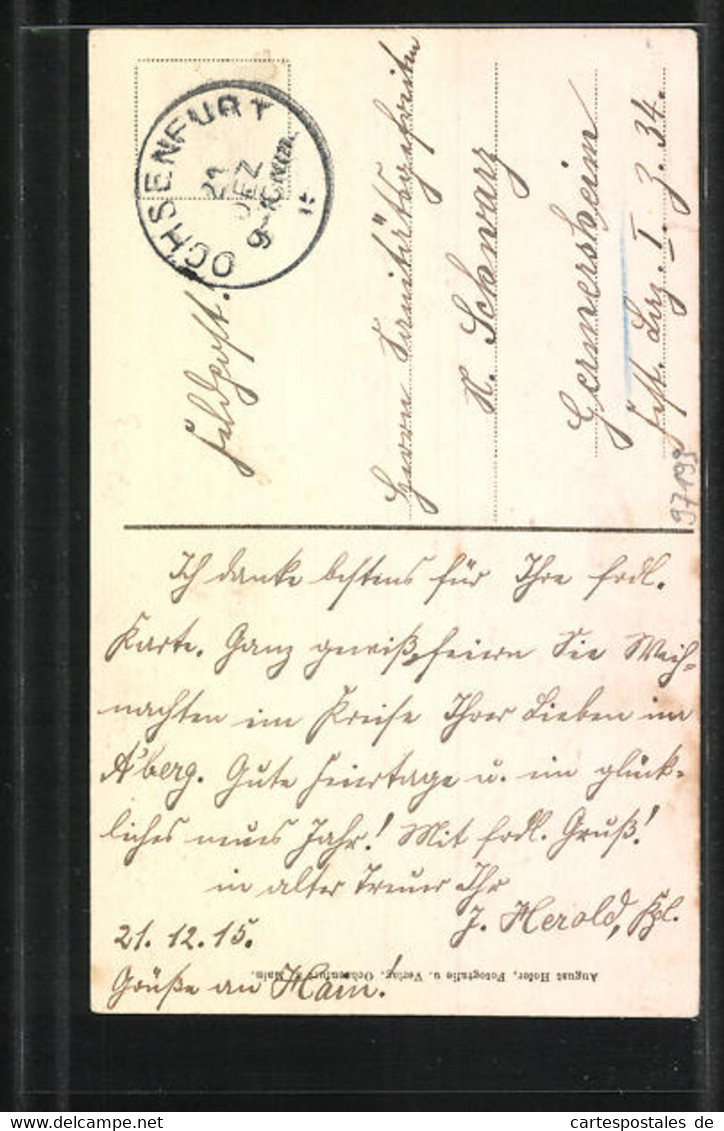 OCHSENFURT
21
DEZ
9-10 Nm.
15
Feldpost.
Herrn Sanitätsgefreiten
H. Schwarz
Germersheim
Fest. Laz. I. Z. 34.
97193
Ich danke bestens für Ihre frdl.
Karte. Ganz gewiß feiern Sie Weih-
nachten im Kreise Ihrer Lieben in
A'berg. Gute Feiertage u. ein glück-
liches neues Jahr! Mit frdl. Gruß!
in alter Treue Ihr
J. Herold, Kpl.
21. 12. 15.
Grüße an Ham!
August Hofer, Fotografie u. Verlag, Ochsenfurt a. Main.
cartespostales de